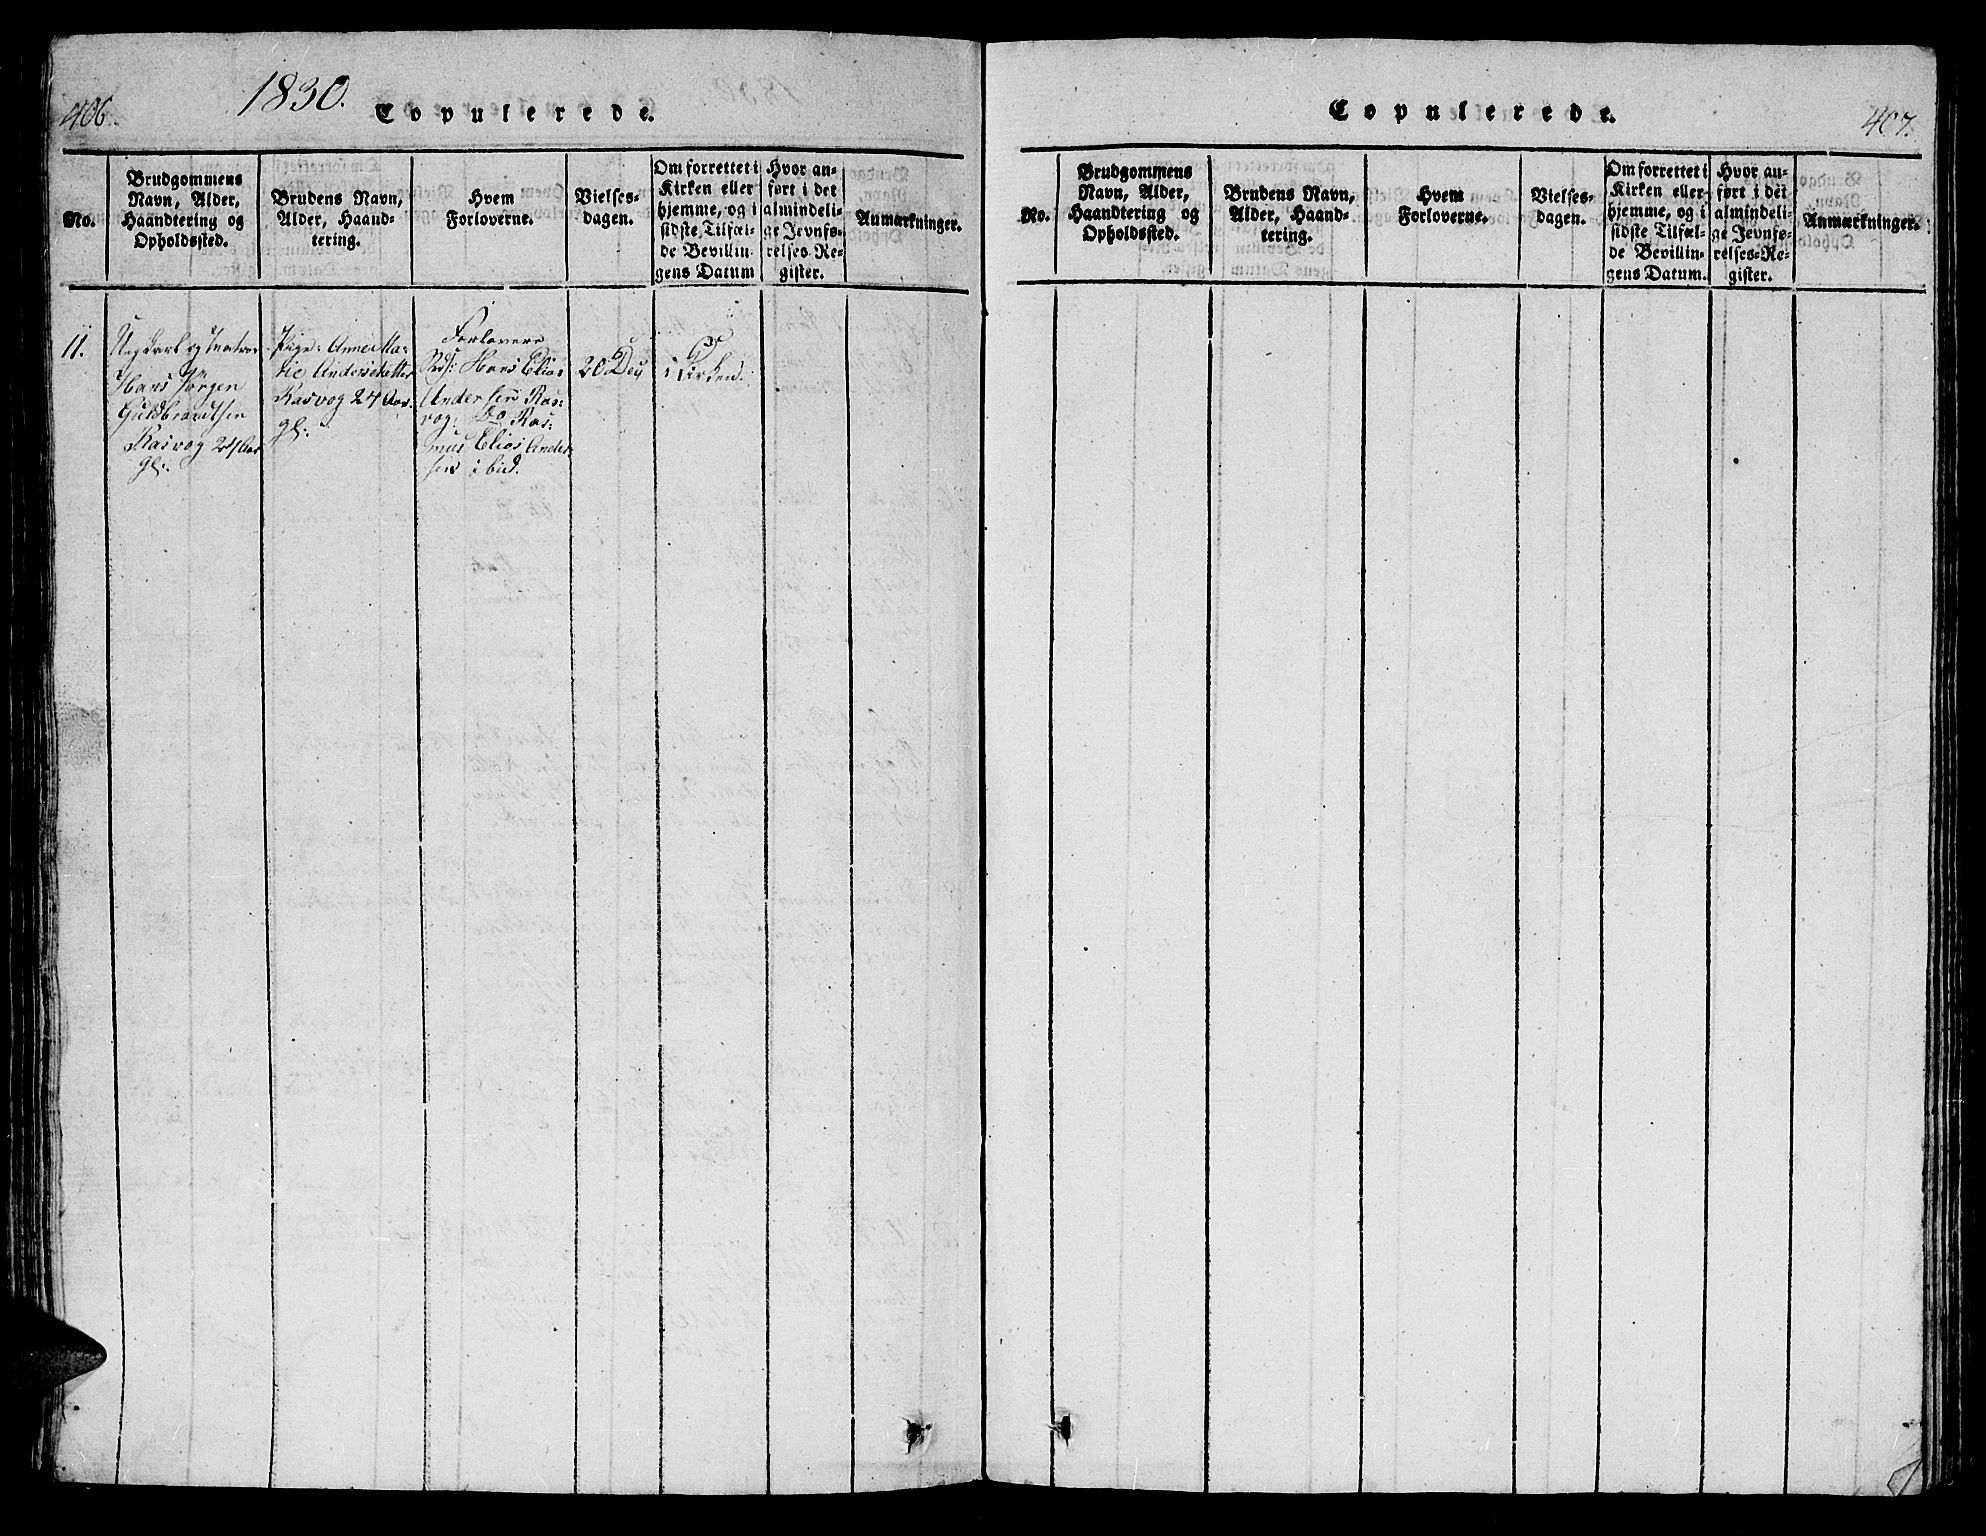 406.
1830.
Copulerede.
No.
Brudgommens
Navn, Alder,
Haandtering og
Opholdssted.
Brudens Navn,
Alder, Haand-
tering.
Hvem
Forloverne.
Vielses-
dagen.
Om forrettet i
Kirken eller
hjemme, og i
sidste Tilfæl-
de Bevillin-
gens Datum
Hvor an-
ført i det
almindeli-
ge Jevnfø-
relses-Re-
gister.
Anmærkninger.
11.
Ungkarl og
Hans Jörgen
Guldbrandtsen
Rasvog 24 Aar
gl:
Pige: Anne Ma-
rie Andersdatter
Rasvog 24 Aar
gl:
Forlovere
Hans Elias
Andersen Ras-
vog: Do Ras-
mus Elias Ander-
sen ibid.
20 Dec
i Kirken.
Copulerede.
407.
No.
Brudgommens
Navn, Alder,
Haandtering og
Opholdssted.
Brudens Navn,
Alder, Haand-
tering.
Hvem
Forloverne.
Vielses-
dagen.
Om forrettet i
Kirken eller
hjemme, og i
sidste Tilfæl-
de Bevillin-
gens Datum.
Hvor an-
ført i det
almindeli-
ge Jevnfø-
relses-Re-
gister.
Anmærkninger.